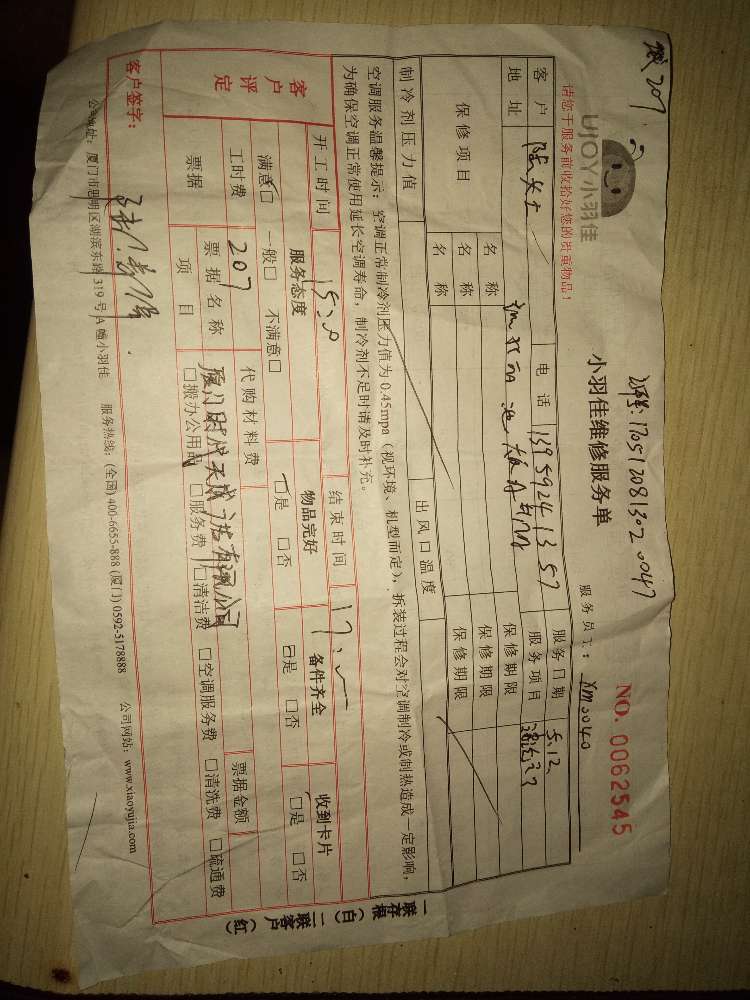 207
UJOY小羽佳
请您于服务前收拾好您的贵重物品！
小羽佳维修服务单
NO. 0062545
服务员工： XM3040
客户 陈女士 电话 13959241357 服务日期 5.12
地址 服务项目
保修项目 名称 保修期限
名称 保修期限
名称 保修期限
制冷剂压力值 出风口温度
空调服务温馨提示：空调正常制冷剂压力值为 0.45mpa（视环境、机型而定），拆装过程会对空调制冷或制热造成一定影响，
为确保空调正常使用延长空调寿命，制冷剂不足时请及时补充。
开工时间 结束时间
客户评定 服务态度 物品完好 备件齐全 收到卡片
满意□ 一般□ 不满意□ □是 □否 □是 □否 □是 □否
工时费 207 代购材料费
票据 票据名称 票据金额
项目 □搬办公用品 □服务费 □清洁费 □空调服务费 □清洗费 □疏通费
客户签字：
公司地址：厦门市思明区湖滨东路 319 号 A 幢小羽佳 服务热线：(全国) 400-6655-888 (厦门) 0592-5178888 公司网站：www.xiaoyujia.com
一联存根（白） 二联客户（红）